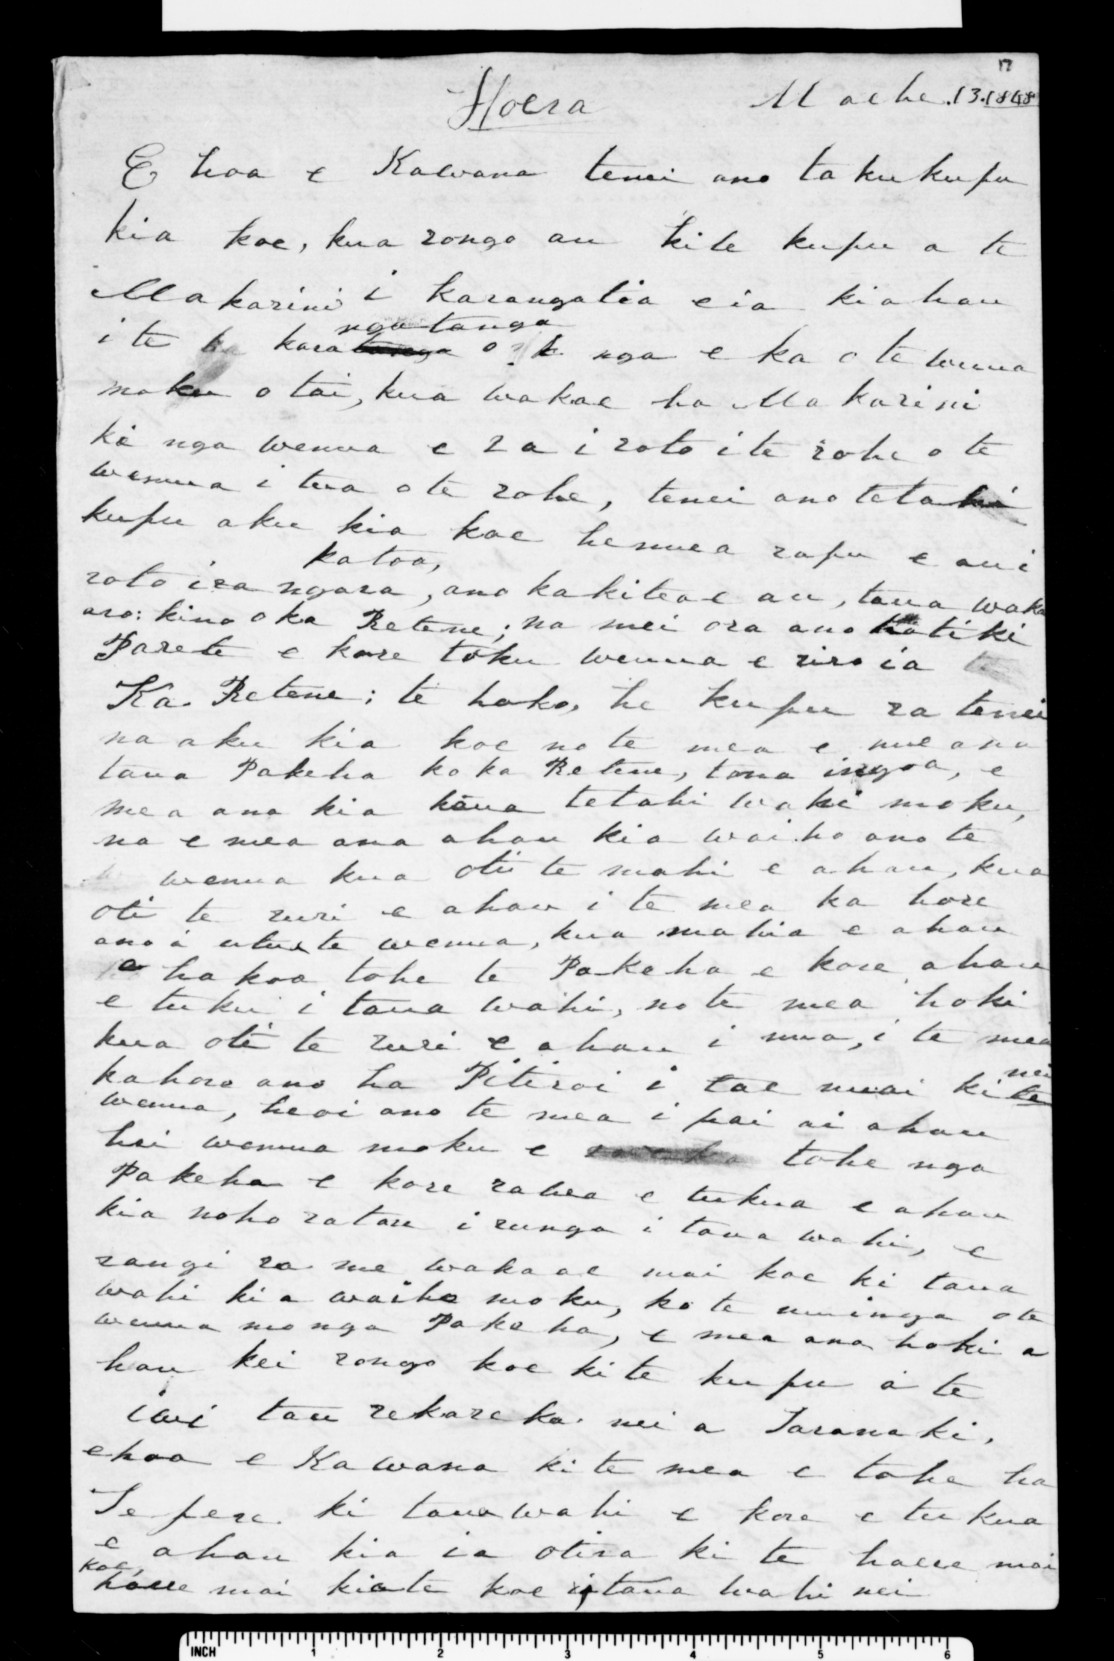 17
Hoera Mache .13.1848
E hoa e Kawana tenei ano ta ku kupu
kia koe, kua rongo au ki te kupu a te
Makarini i karangatia e ia ki ahau
i te kara ngatanga o nga e ka o te wenua
moku o tai, kua wakae ha Makarini
ki nga wenua e ra i roto i te rohe o te
wenua i tua o te rohe, tenei ano tetahi
kupu aku kia koe he mea rapu e au i
katoa,
roto i ra ngara, ano ka kitea e au, taua waka
aro: kino o ka Retene; na mei ora ano ha tiki
Parete e kore toku wenua e riro ia
Ka Retene; te hoko, he kupu ra tenei
na aku kia koe no te mea e mea ana
taua Pakeha ko ka Retene, tona ingoa, e
mea ana kia kaua tetahi wahi moku,
na e mea ana ahau kia waiho ano te
wenua kua oti te mahi e ahau, kua
oti te ruri e ahau i te mea ka hore
ano i utua te wenua, kua mahia e ahau
e ha koa tohe te Pakeha e kore ahau
e tuku i taua wahi, no te mea hoki
kua oti te ruri e ahau i mua, i te mea
kahore ano ha Pitiroi i tae mai ki nei
wenua, heoi ano te mea i pai ai ahau
hei wenua moku e tohe nga
Pakeha e kore rawa e tukua e ahau
kia noho ratau i runga i taua wahi, e
rangi ra me wakaae mai koe ki taua
wahi kia waiho moku, ko te nuinga o te
wenua mo nga Pakeha, e mea ana hoki a
hau kei rongo koe ki te kupu a te
iwi tau rekareka nei a Taranaki.
e hoa e Kawana ki te mea e tohe ha
Te pere ki taua wahi e kore e tukua
e ahau kia ia otira ki te haere mai
koe, haere mai kia te koe i taua wahi nei
INCH 1 2 3 4 5 6